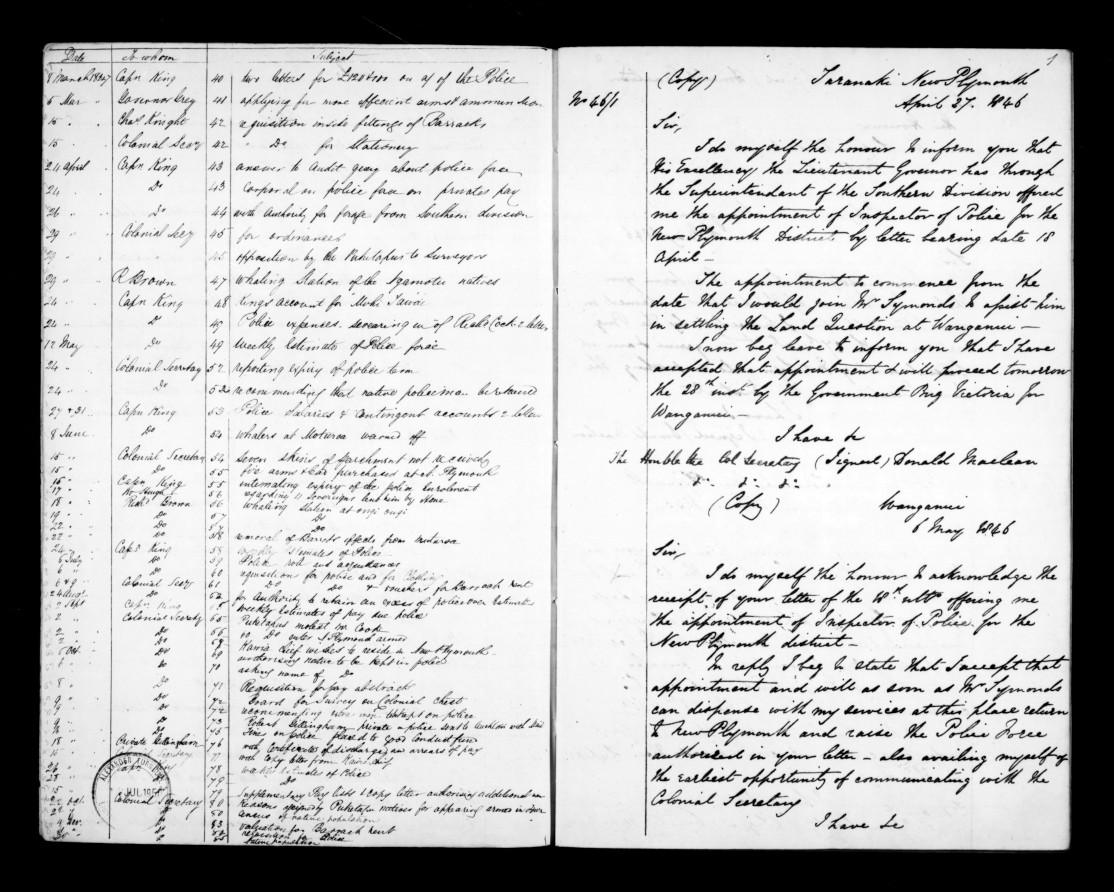 Date To whom Subject
8 March 1847 Capn King 40 two letters for £120 & 100 on a/c of the Police
5 Mar " Governor Grey 41 applying for more efficient arms & ammunition
15 " " Chas Knight 42 requisition inside fittings of Barracks
15 " " Colonial Secy 42 " Do for Stationery
24 April Capn King 43 answer to Audit query about police force
24 " Do 43 Corporal on police force on private pay
26 " Do 44 with Authority for forage from Southern division
29 " Colonial Secy 45 for ordinances
29 " " 45 opposition by the Puketapu's to Surveyors
29 " R Brown 47 whaling Station of the Ngamotu natives
24 " Capn King 48 account for
24 " Do 49 Police expenses swearing in of Richd Cook 2 letters
12 May Do 49 Weekly Estimate of Police force
24 " Colonial Secretary 52 reporting expiry of police term
24 " Do 52 recommending that native policeman be retained
27 & 31 Capn King 53 Police Salaries & Contingent accounts 2 letters
8 June Do 54 whalers at Moturoa warned off
15 " Colonial Secretary 54 Seven Skins of parchment not received
15 " Do 55 fire arms & purchased at N. Plymouth
15 " Capn King 55 intimating expiry of the police Enrolment
17 " 56 regarding 11 Sovereigns lent him by
18 " Richd Brown 56 Whaling Station at ongi ongi
19 " Do 57 Do
22 " Do 57 Do
22 " Do 58 removal of Barretts effects from Moturoa
24 " Capn King 58 weekly Estimates of Police
July Do 59 Police roll and acquittances
" Do 60 requisitions for police and for Clothing
6 & 9 " Colonial Secy 61 Do Do & vouchers for Barrack Rent
24 Augt Do for Authority to retain an excess of police over Estimates
2 Sept Capn King 65 Weekly Estimates of pay due police
2 " Colonial Secretary 65 Puketapus molest Mr Cook
2 " Do 66 Do enter N Plymouth armed
Do Kawia Chief wishes to reside in New Plymouth
Oct Do 69 authorising native to be kept in police
6 " Do 70 asking name of Do
8 " Do 71 Requisition for pay abstract
9 " Do 72 Board for Survey on Colonial Chest
9 " Do 72 recommending extra men be kept on police
9 " Do 73 Robert Nettingham private in police
16 " Do 75 Fines on police placed to good Conduct fund
18 " Private Nettingham 76 with Certificates of discharge & arrears of pay
77 with Copy letter from Kawia Chief
24 " Capn King 78 weekly Estimates of Police
28 " 79 Do
15 " 79 Supplementary Pay lists & copy letter authorising additional men
Oct Colonial Secretary 80 Reasons assigned by Puketapu natives for appearing armed in town
Do 80 Census of native population
4 Nov Do 83 valuation for Barrack Rent
Do requisition for Police
native population
ALEXANDER TURNBULL
JUL 195
1
(Copy) Taranaki New Plymouth
No 46/1 April 27. 1846
Sir,
I do myself the honour to inform you that
His Excellency the Lieutenant Governor has through
the Superintendant of the Southern Division offered
me the appointment of Inspector of Police for the
New Plymouth District by letter bearing date 18
April —
The appointment to commence from the
date that I would join Mr Symonds to assist him
in settling the Land Question at Wanganui —
I now beg leave to inform you that I have
accepted that appointment & will proceed tomorrow
the 28th inst. by the Government Brig Victoria for
Wanganui —
I have &c
The Honble the Col Secretary (Signed) Donald Maclean
&c &c &c
(Copy) Wanganui
6 May 1846
Sir,
I do myself the honour to acknowledge the
receipt of your letter of the 18th ulto offering me
the appointment of Inspector of Police for the
New Plymouth district —
In reply I beg to state that I accept that
appointment and will as soon as Mr Symonds
can dispense with my services at this place return
to New Plymouth and raise the Police Force
authorised in your letter — also availing myself of
the earliest opportunity of communicating with the
Colonial Secretary
I have &c